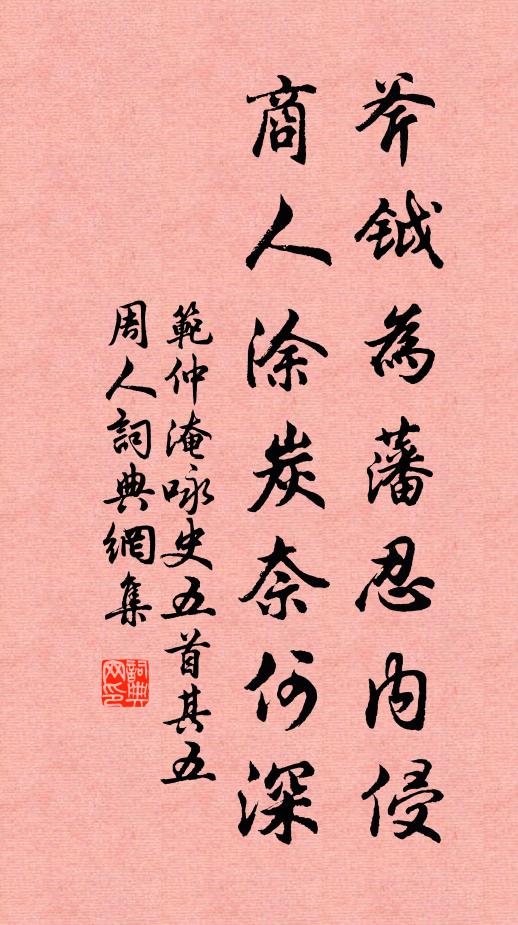 斧鉞為藩忍内侵
商人涂炭奈何深
範仲淹咏史五首其五
周人詞典網集
詞典网印